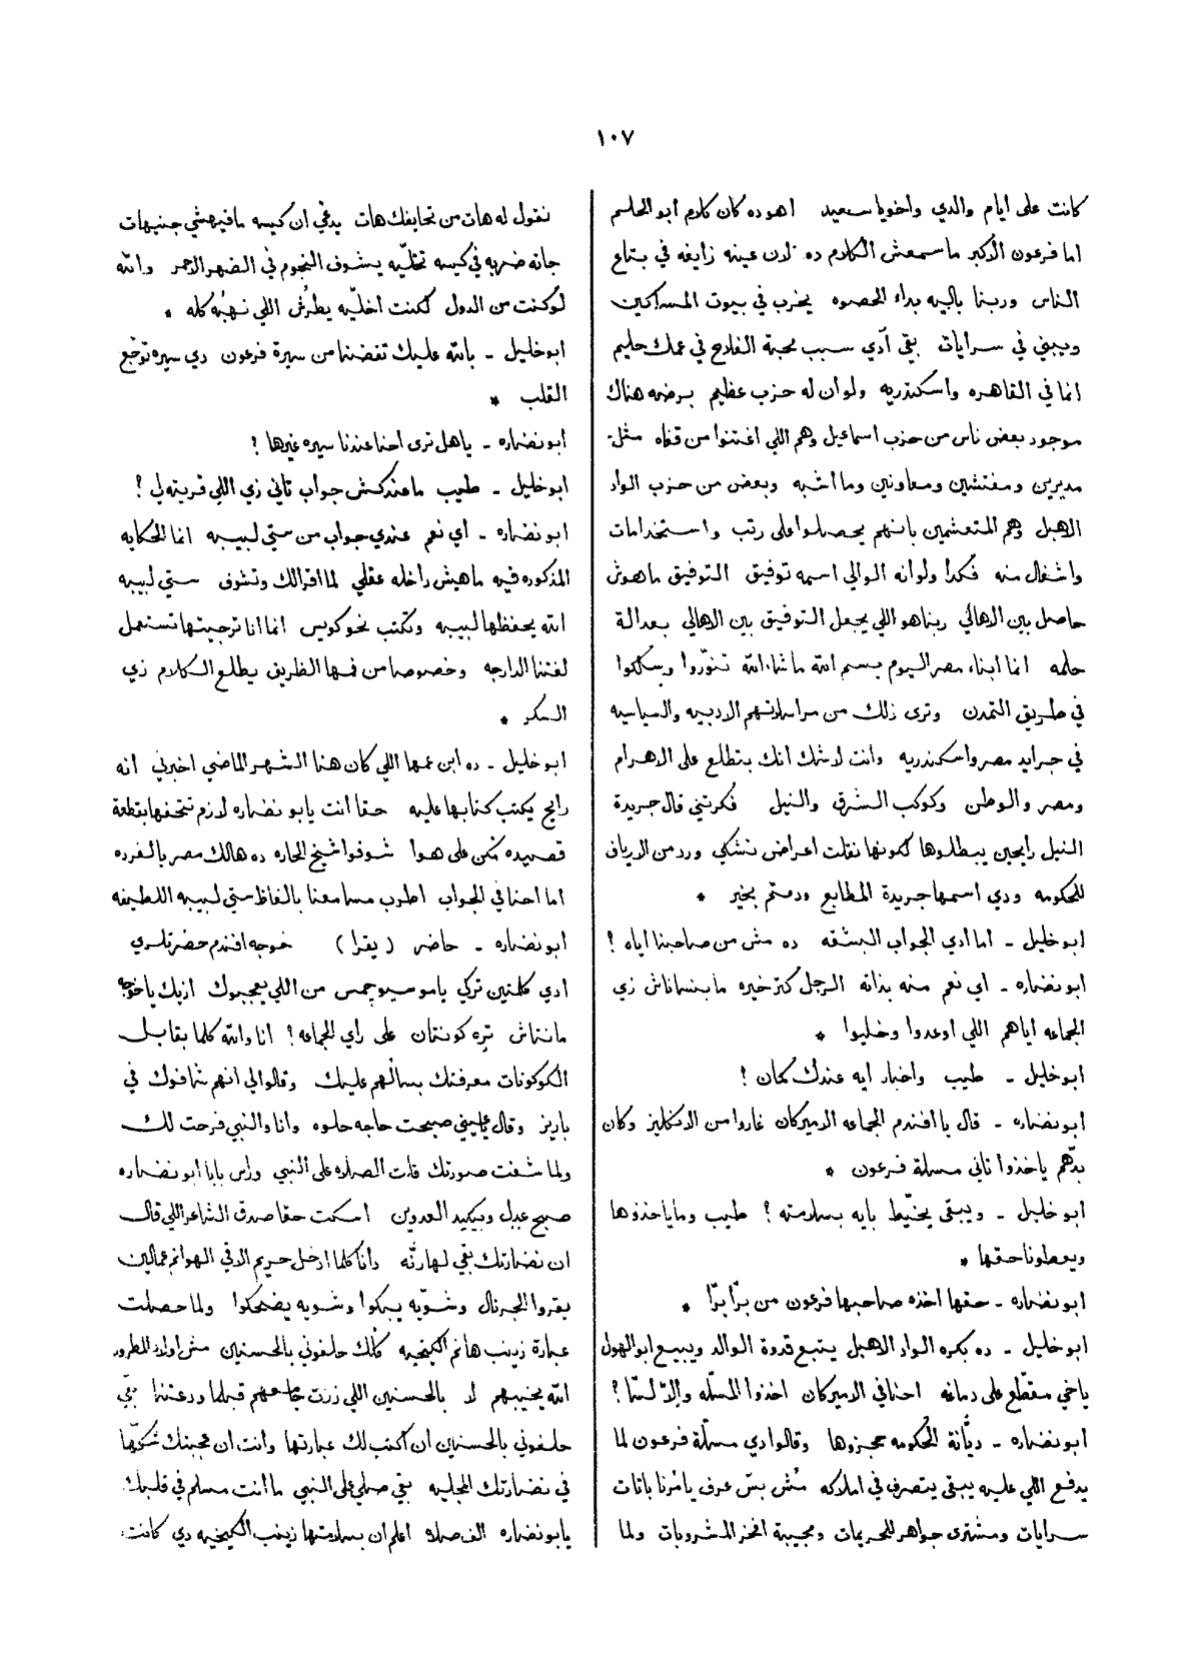 ١٠٧
كانت على ايام والدي واخويا سعيد اهو ده كان كلام ابو الحلم
اما فرعون الأكبر ما سمعش الكلام ده لان عينه زايغه في بتاع
الناس وربنا باليه بداء الحصوه يخرب في بيوت المساكين
ويبني في سرايات بقى آدي سبب محبة الفلاح في عمك حليم
انما في القاهره واسكندريه ولو ان له حزب عظيم برضه هناك
موجود بعض ناس من حزب اسماعيل وهم اللي اغتنوا من قفاه مثل
مديرين ومفتشين ومعاونين وما اشبه وبعض من حزب الواد
الاهبل وهم المتعشمين بانهم يحصلوا على رتب واستخدامات
واشغال منه فكدا ولو انه الوالي اسمه توفيق التوفيق ماهوش
حاصل بين الاهالي ربنا هو اللي يجعل التوفيق بين الاهالي بعدالة
حلمه انما ابناء مصر اليوم بسم الله ما شاء الله تنوّروا وسلكوا
في طريق التمدن وترى ذلك من مراسلاتهم الادبيه والسياسيه
في جرايد مصر واسكندريه وانت لا شك انك بتطلع على الاهرام
ومصر والوطن وكوكب الشرق والنيل فكرتني قال جريدة
النيل رايحين يبطلوها لكونها نقلت اعراض تشكي ورد من الارياف
للحكومه ودي اسمها جريدة المطابع ودمتم بخير *
ابو خليل - اما ادي الجواب البشقه ده مش من صاحبنا اياه ؟
ابو نضاره - اي نعم منه بذاته الرجل كتر خيره ما بنساناش زي
الجماعه اياهم اللي اوعدوا وخليوا *
ابو خليل - طيب واخبار ايه عندك كمان ؟
ابو نضاره - قال يا افندم الجماعه الاميركان غاروا من الانكليز وكان
بدّهم ياخذوا تاني مسلة فرعون *
ابو خليل - ويبقى يخيّط بايه بسلامته ؟ طيب وما ياخذوها
ويعطونا حقها *
ابو نضاره - حقها اخذه صاحبها فرعون من برّا برّا *
ابو خليل - ده بكره الواد الاهبل يتبع قدوة الوالد ويبيع ابو الهول
ياخي مقطّع على دماغه احنا في الاميركان اخذوا المسلّه والّا لسّا ؟
ابو نضاره - ديّانة الحكومه حجزوها وقالوا دي مسلّة فرعون لما
يدفع اللي عليه يبقى يتصرف في املاكه مُش بسّ عرف يامُرنا باتات
سرايات ومشترى جواهر للحريمات ومجيبة افخر المشروبات ولما
نقول له هات من تحايفك هات يدعي ان كيسه ما فيهشي جنيهات
جاته ضربه في كيسه تخليّه يشوف النجوم في الضهر الاحمر والله
لو كنت من الدول لكنت اخليّه يطرُش اللي نهبُه كله *
ابو خليل - بالله عليك تفضنا من سيرة فرعون دي سيره توجّع
القلب *
ابو نضاره - يا هل ترى احنا عندنا سيره غيرها ؟
ابو خليل - طيب ما عندكش جواب تاني زي اللي قريته لي ؟
ابو نضاره - اي نعم عندي جواب من ستي لبيبه انما الحكايه
المذكوره فيه ماهيش داخله عقلي لما اقرالك وتشوف ستي لبيبه
الله يحفظها لبيبه وتكتب نحو كويس انما انا ترجيتها تستعمل
لغتنا الدارجه وخصوصا من فمها الظريف يطلع الكلام زي
السكر *
ابو خليل - ده ابن عمها اللي كان هنا الشهر الماضي اخبرني انه
رايح يكتب كتابها عليه حقا انت يابو نضاره لازم تتحفها بقطعة
قصيده تكن على هوا شوفوا شيخ الحاره ده هالك مصر بالفرده
اما احنا في الجواب اطرب مسامعنا بالفاظ ستي لبيبه اللطيفه
ابو نضاره - حاضر (يقرا) خوجه افندم حضرتلري
ادي كلمتين تركي يا موسيو جمس من اللي يعجبوك ازيك يا خوجه
مانتاش تره كونتان على راي الجماعه ! انا والله كلما بقابل
الكوكونات معرفتك بسالهم عليك وقالوا لي انهم شافوك في
باريز وقال عمليني صبحت حاجه حلوه وانا والنبي فرحت لك
ولما شفت صورتك قلت الصلاه على النبي وراس بابا ابو نضاره
صبح عدِل وبيكيد العدوين اسكت حقا صدق الشاعر اللي قال
ان نضارتك بقى لها رنّه دانا كلما ادخل حريم الاقي الهوانم عمالين
يقروا الجرنال وشويّه يبكوا وشويه يضحكوا ولما حصلت
عبارة زينب هانم الكيخيه كلّك حلفوني بالحسنين مش اولاد المطرود
الله يخيبهم لا بالحسنين اللي زرت جامعهم قبلما ودعتنا بقى
حلفوني بالحسنين ان اكتب لك عبارتها وانت ان عجبتك شكّها
في نضارتك المجليه بقى صلي على النبي ما انت مسلم في قلبك
يابو نضاره الف صلا اعلم ان بسلامتها زينب الكيخيه دي كانت